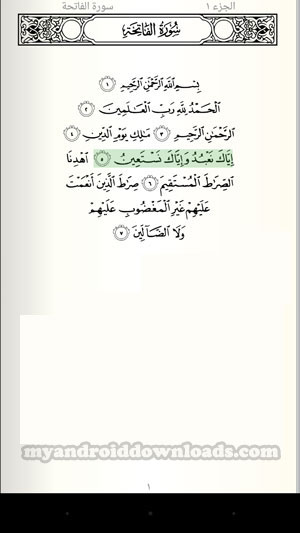 سورة الفاتحة الجزء ١
سُورَةُ الفَاتِحَةِ
بِسْمِ اللَّهِ الرَّحْمَٰنِ الرَّحِيمِ ١
الْحَمْدُ لِلَّهِ رَبِّ الْعَالَمِينَ ٢
الرَّحْمَٰنِ الرَّحِيمِ ٣ مَالِكِ يَوْمِ الدِّينِ ٤
إِيَّاكَ نَعْبُدُ وَإِيَّاكَ نَسْتَعِينُ ٥ اهْدِنَا
الصِّرَاطَ الْمُسْتَقِيمَ ٦ صِرَاطَ الَّذِينَ أَنْعَمْتَ
عَلَيْهِمْ غَيْرِ الْمَغْضُوبِ عَلَيْهِمْ
وَلَا الضَّالِّينَ ٧
myandroiddownloads.com
١